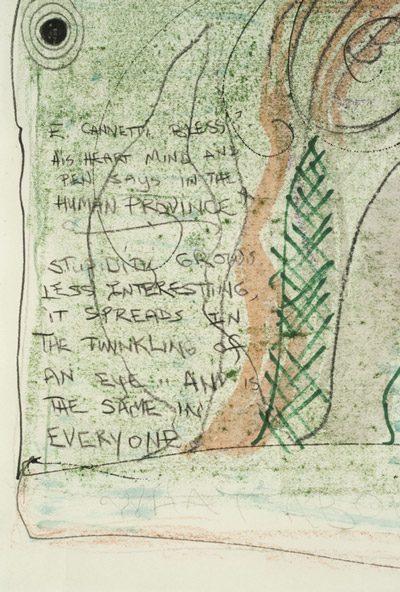 E. CANNETTI, BLESS
HIS HEART MIND AND
PEN SAYS IN THE
HUMAN PROVINCE
STUPIDITY GROWS
LESS INTERESTING,
IT SPREADS IN
THE TWINKLING OF
AN EYE .. AND IS
THE SAME IN
EVERYONE
WHAT